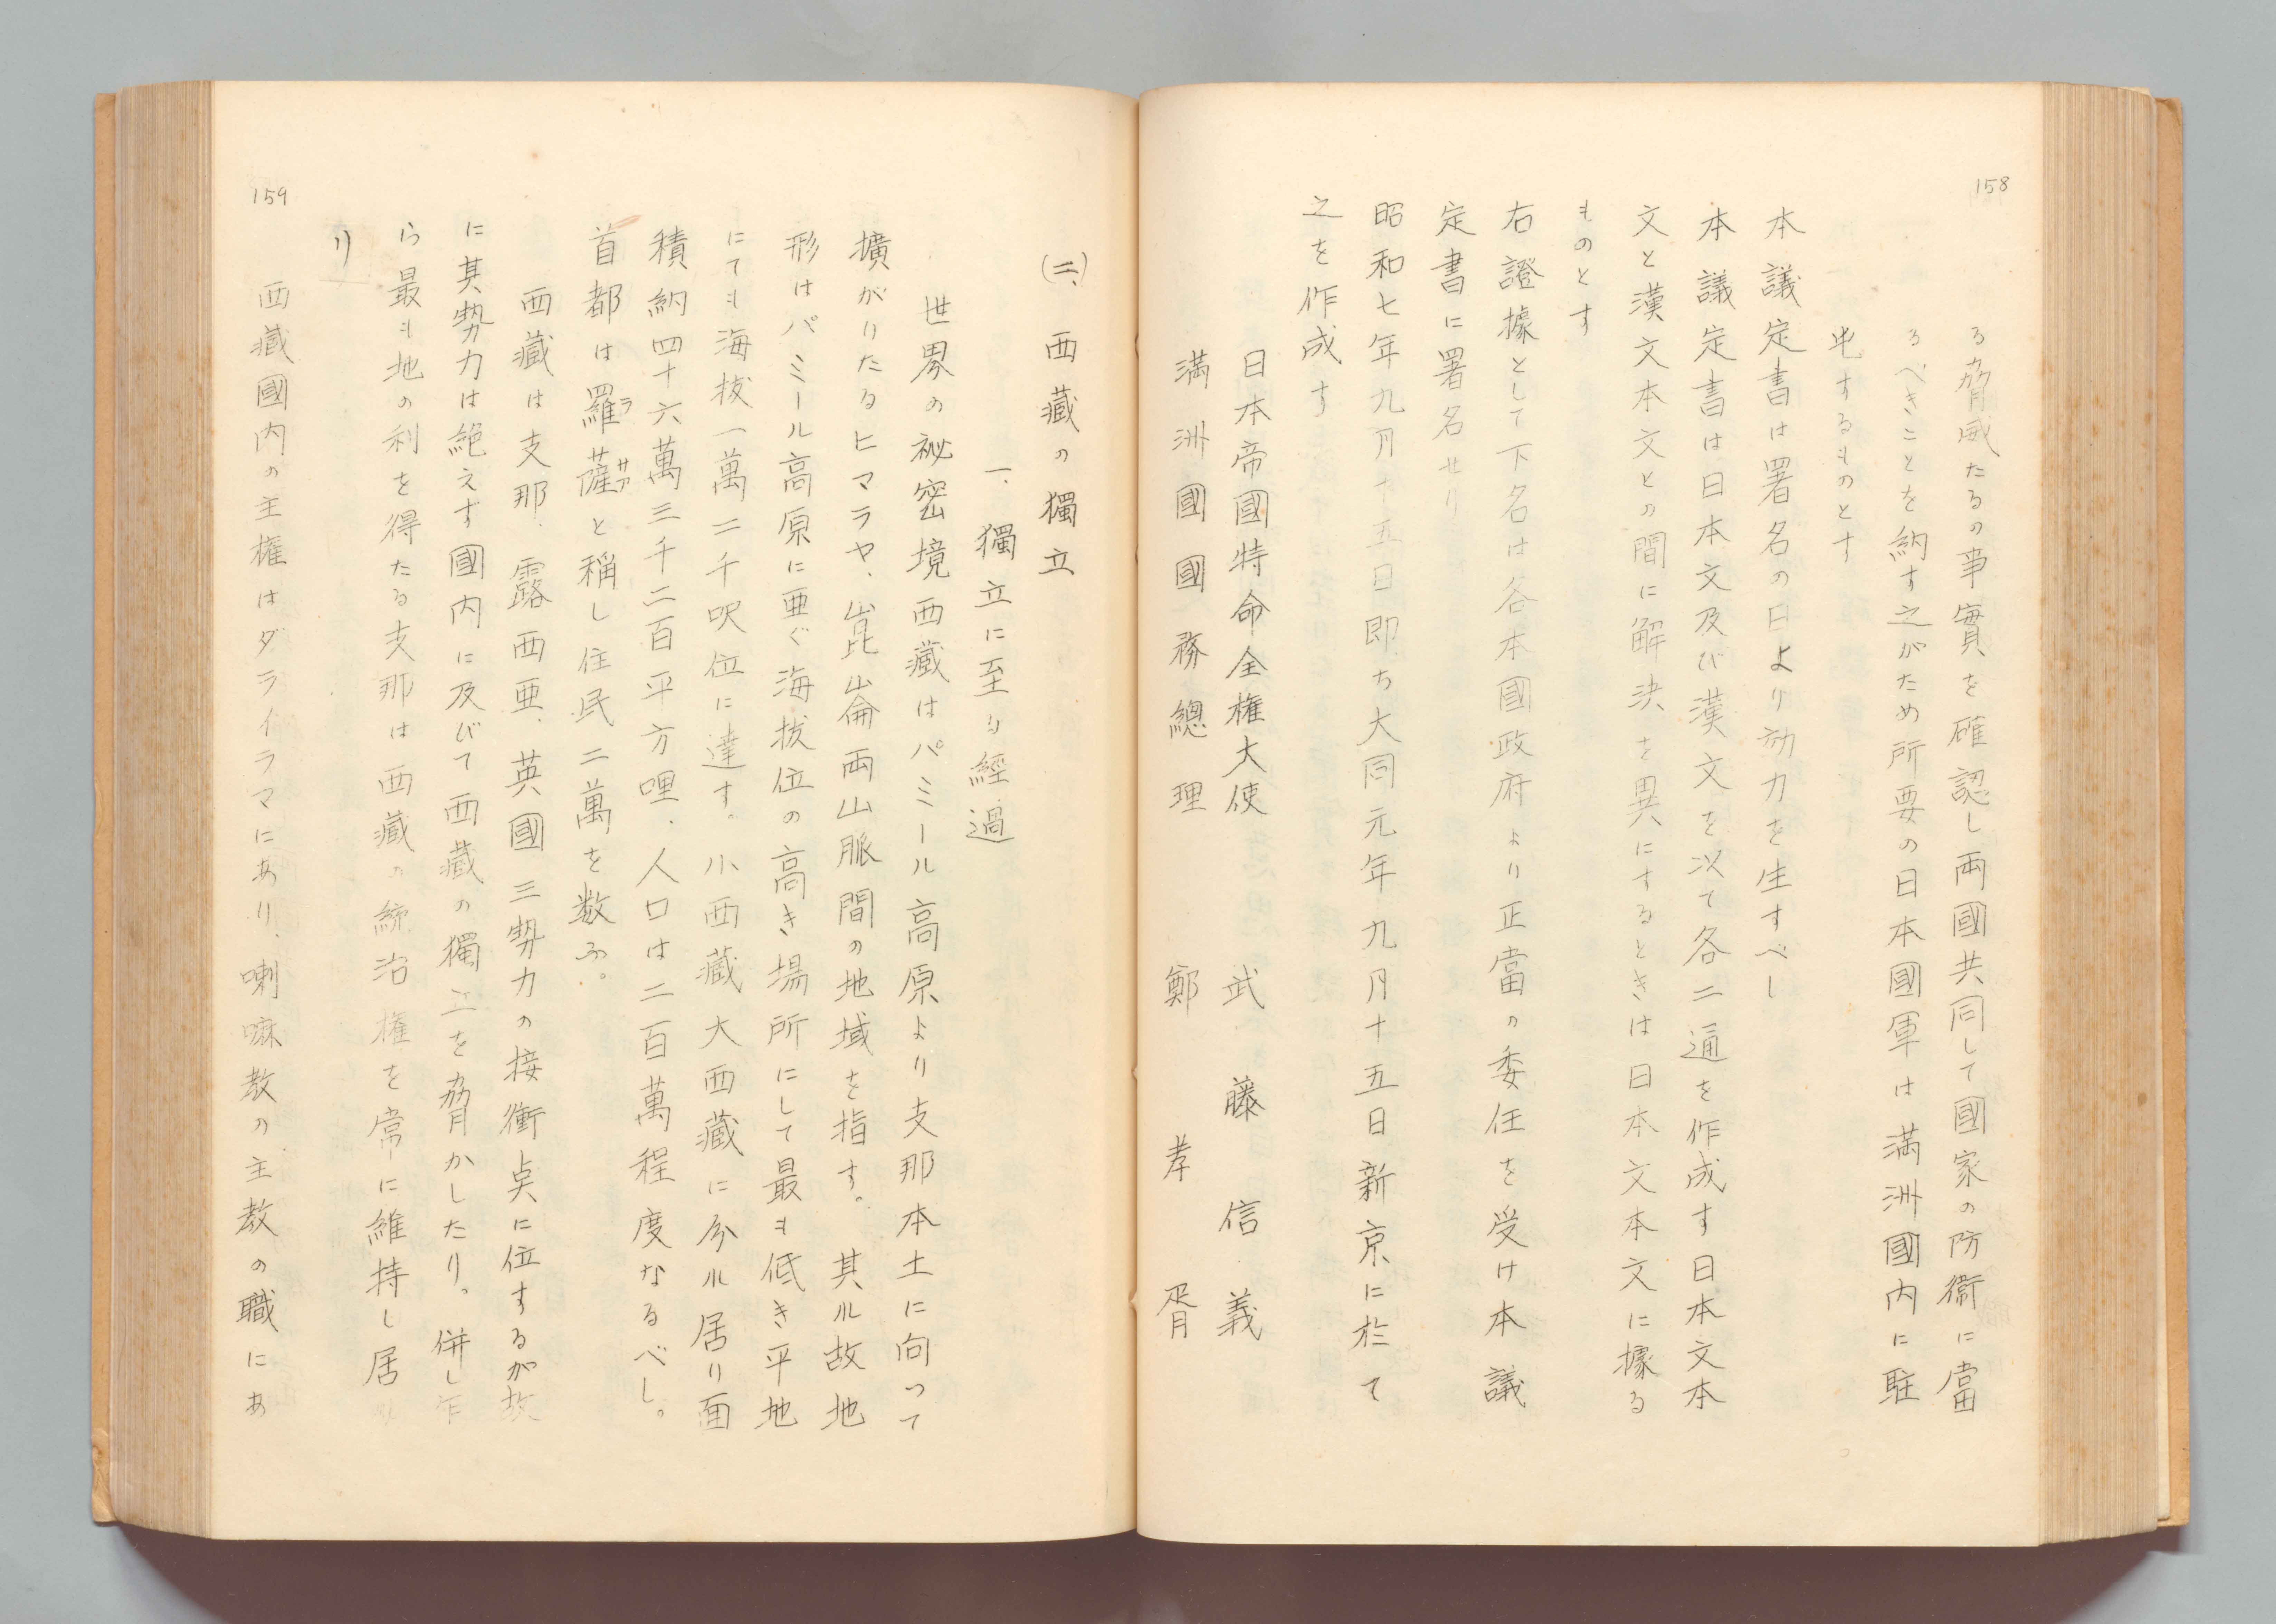 158
る脅威たるの事實を確認し両國共同して國家の防衛に當
るべきことを納す之がため所要の日本國軍は満洲國内に駐
屯するものとす
本議定書は署名の日より効力を生すべし
本議定書は日本文及び漢文を以て各二通を作成す日本文本
文と漢文本文との間に解決を異にするときは日本文本文に據る
ものとす
右證據として下名は各本國政府より正當の委任を受け本議
定書に署名せり
昭和七年九月十五日即ち大同元年九月十五日新京に於て
之を作成す
日本帝國特命全権大使 武藤信義
満洲國國務總理 鄭孝胥
(二)、西藏の獨立
一、獨立に至り經過
世界の祕密境西藏はパミール高原より支那本土に向って
擴がりたるヒマラヤ、崑崙両山脈間の地域を指す。其れ故地
形はパミール高原に亜ぐ海拔位の高き場所にして最も低き平地
にても海拔一萬二千呎位に達す。小西藏大西藏に分れ居り面
積納四十六萬三千二百平方哩、人口は二百萬程度なるべし。
首都は羅薩ラサアと稱し住民二萬を数ふ。
西藏は支那、露西亜、英國三勢力の接衝点に位するが故
に其勢力は絶えす國内に及びて西藏の獨立を脅かしたり。併し乍
ら最も地の利を得たる支那は西藏の統治権を常に維持し居
り
西藏國内の主権はダライラマにあり、喇嘛教の主教の職にあ
159